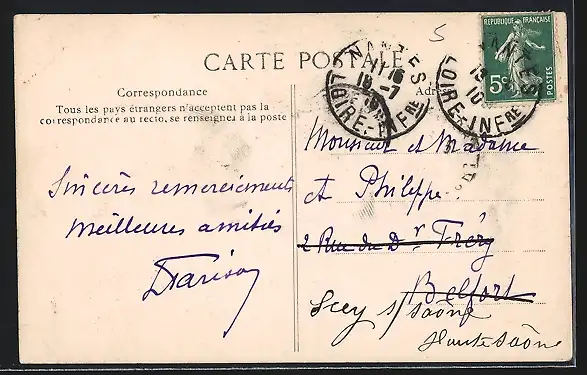 5
CARTE POSTALE
Correspondance
Tous les pays étrangers n'acceptent pas la
correspondance au recto, se renseigner à la poste
Sincères remerciements
Meilleures amitiés
REPUBLIQUE FRANÇAISE
5c
POSTES
NANTES
18-7
LOIRE-INFRE
NANTES
LOIRE-INFRE
Adre
Monsieur et Madame
A Philippe
2 Rue du Dr Fréry
Belfort
Scey s/saône
Haute Saône